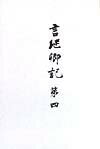 言継卿記 第四